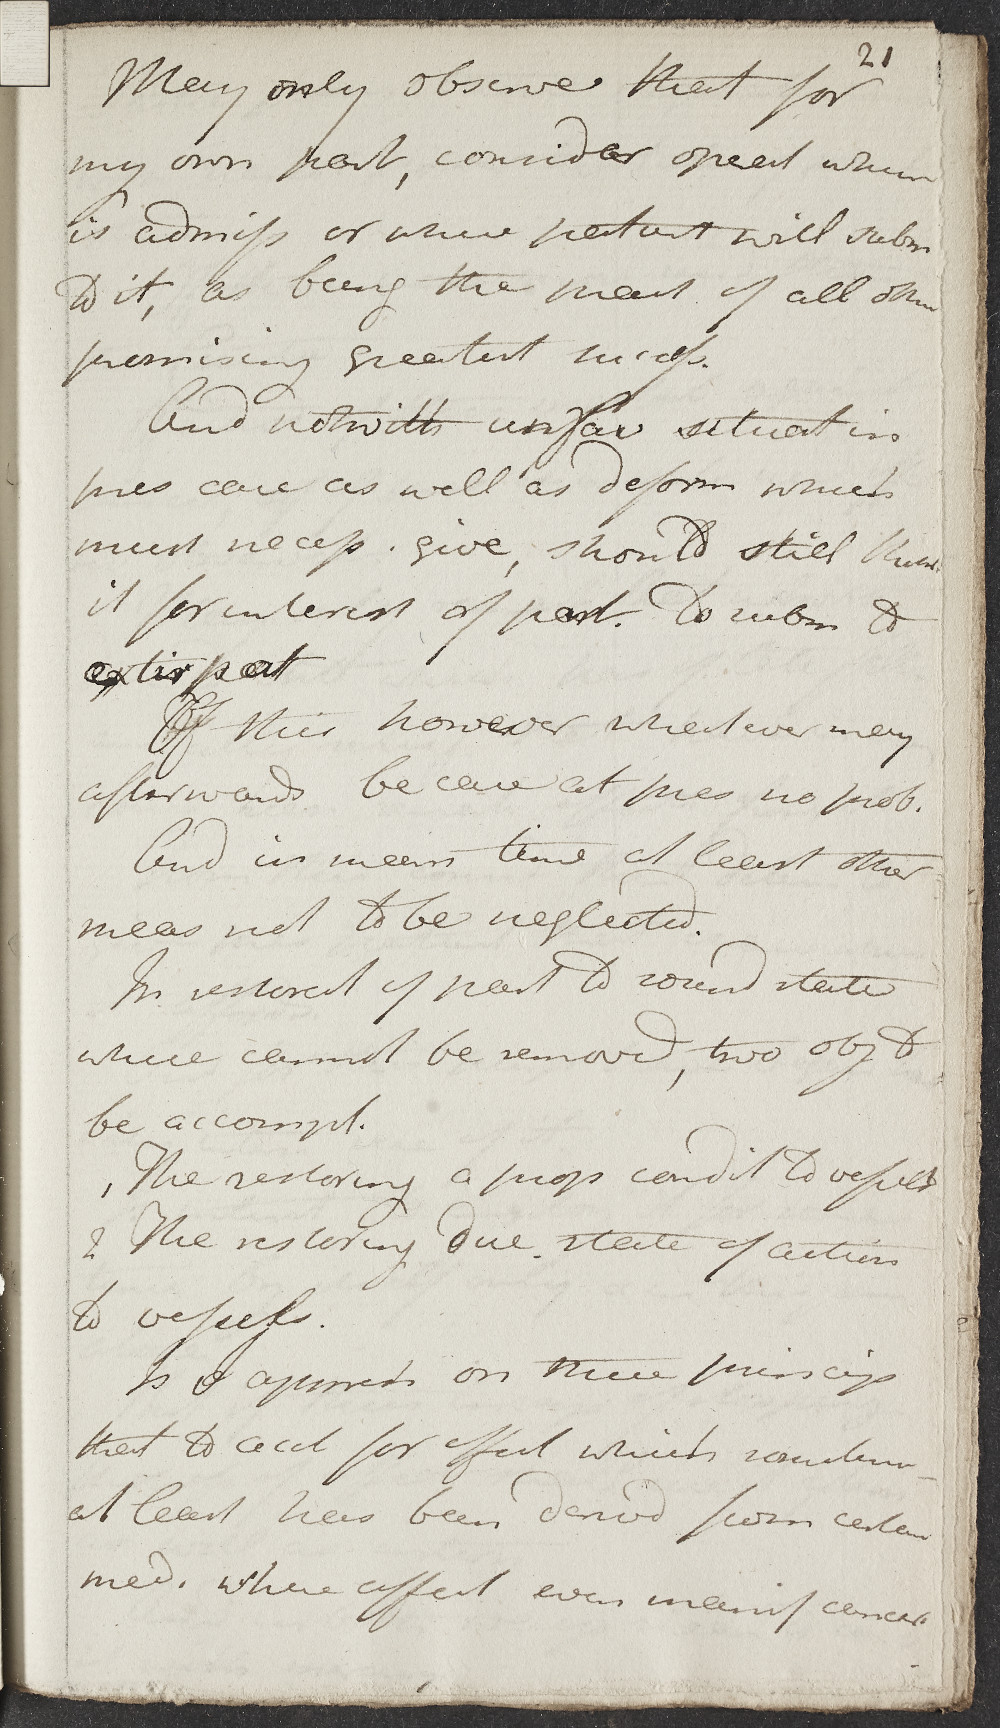 21
May only observe that for
my own part, consider operat when
is admiss or where patient will subm
to it, as being the meas of all other
promising greatest success.
And notwith unfav situat in
pres case as well as deform which
must necess. give, should still think
it for interest of pat. to subm to
extirpat
Of this however whatever may
afterwards be case at pres no prob.
And in mean time at least other
meas not to be neglected.
In restorat of part to sound state
where cannot be removed, two obj to
be accompl.
1 The restoring a prop condit to vessels
2 The restoring due state of action
to vessels.
Is apprehs on these princip
that to acct for effect which sometimes
at least has been derived from certain
med. where affect even manif cancer.